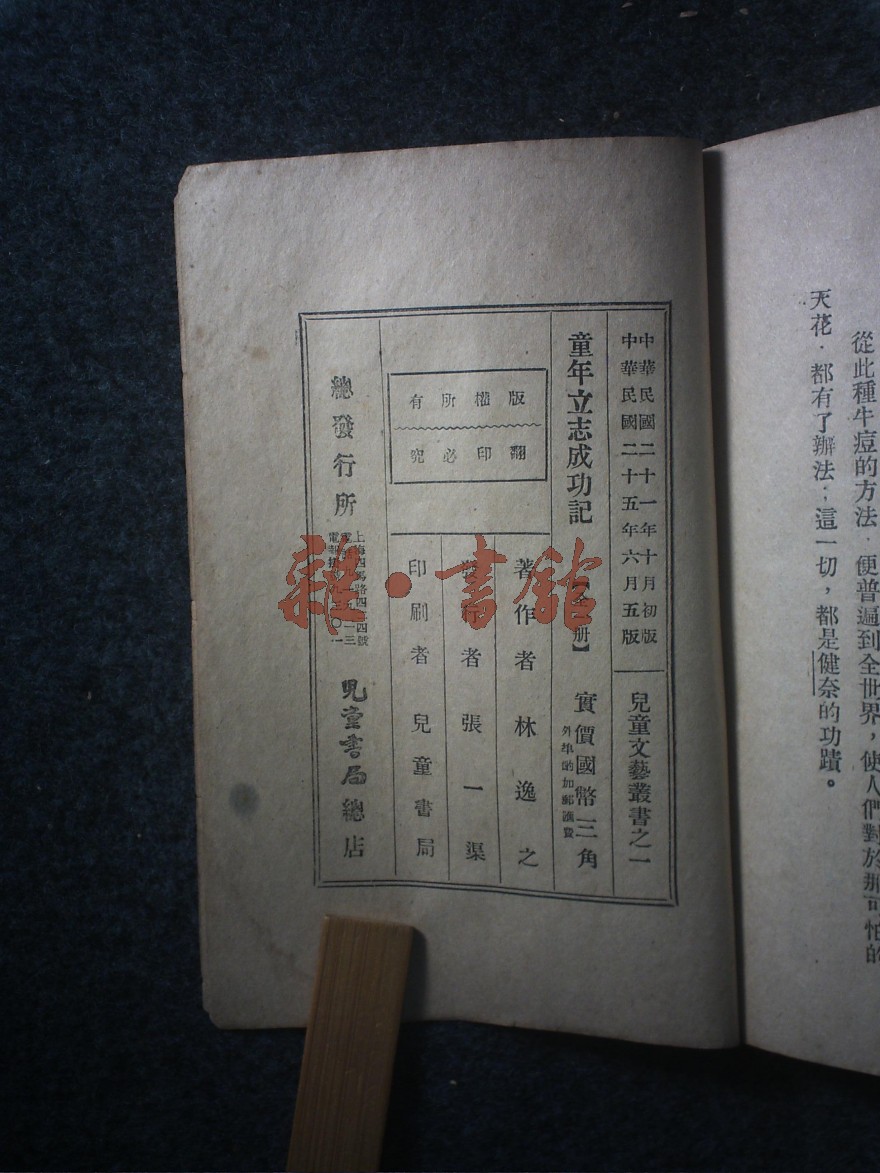 從此種牛痘的方法，便普遍到全世界，使人們對於那可怕的
天花，都有了辦法；這一切，都是健奈的功蹟。
中華民國二十一年十月初版
中華民國二十五年六月五版
兒童文藝叢書之一
童年立志成功記【全一册】
實價國幣三角
外埠酌加郵匯費
版權所有
翻印必究
著作者 林逸之
發行者 張一渠
印刷者 兒童書局
總發行所
上海四馬路四二四號
兒童書局總店
雜·書館